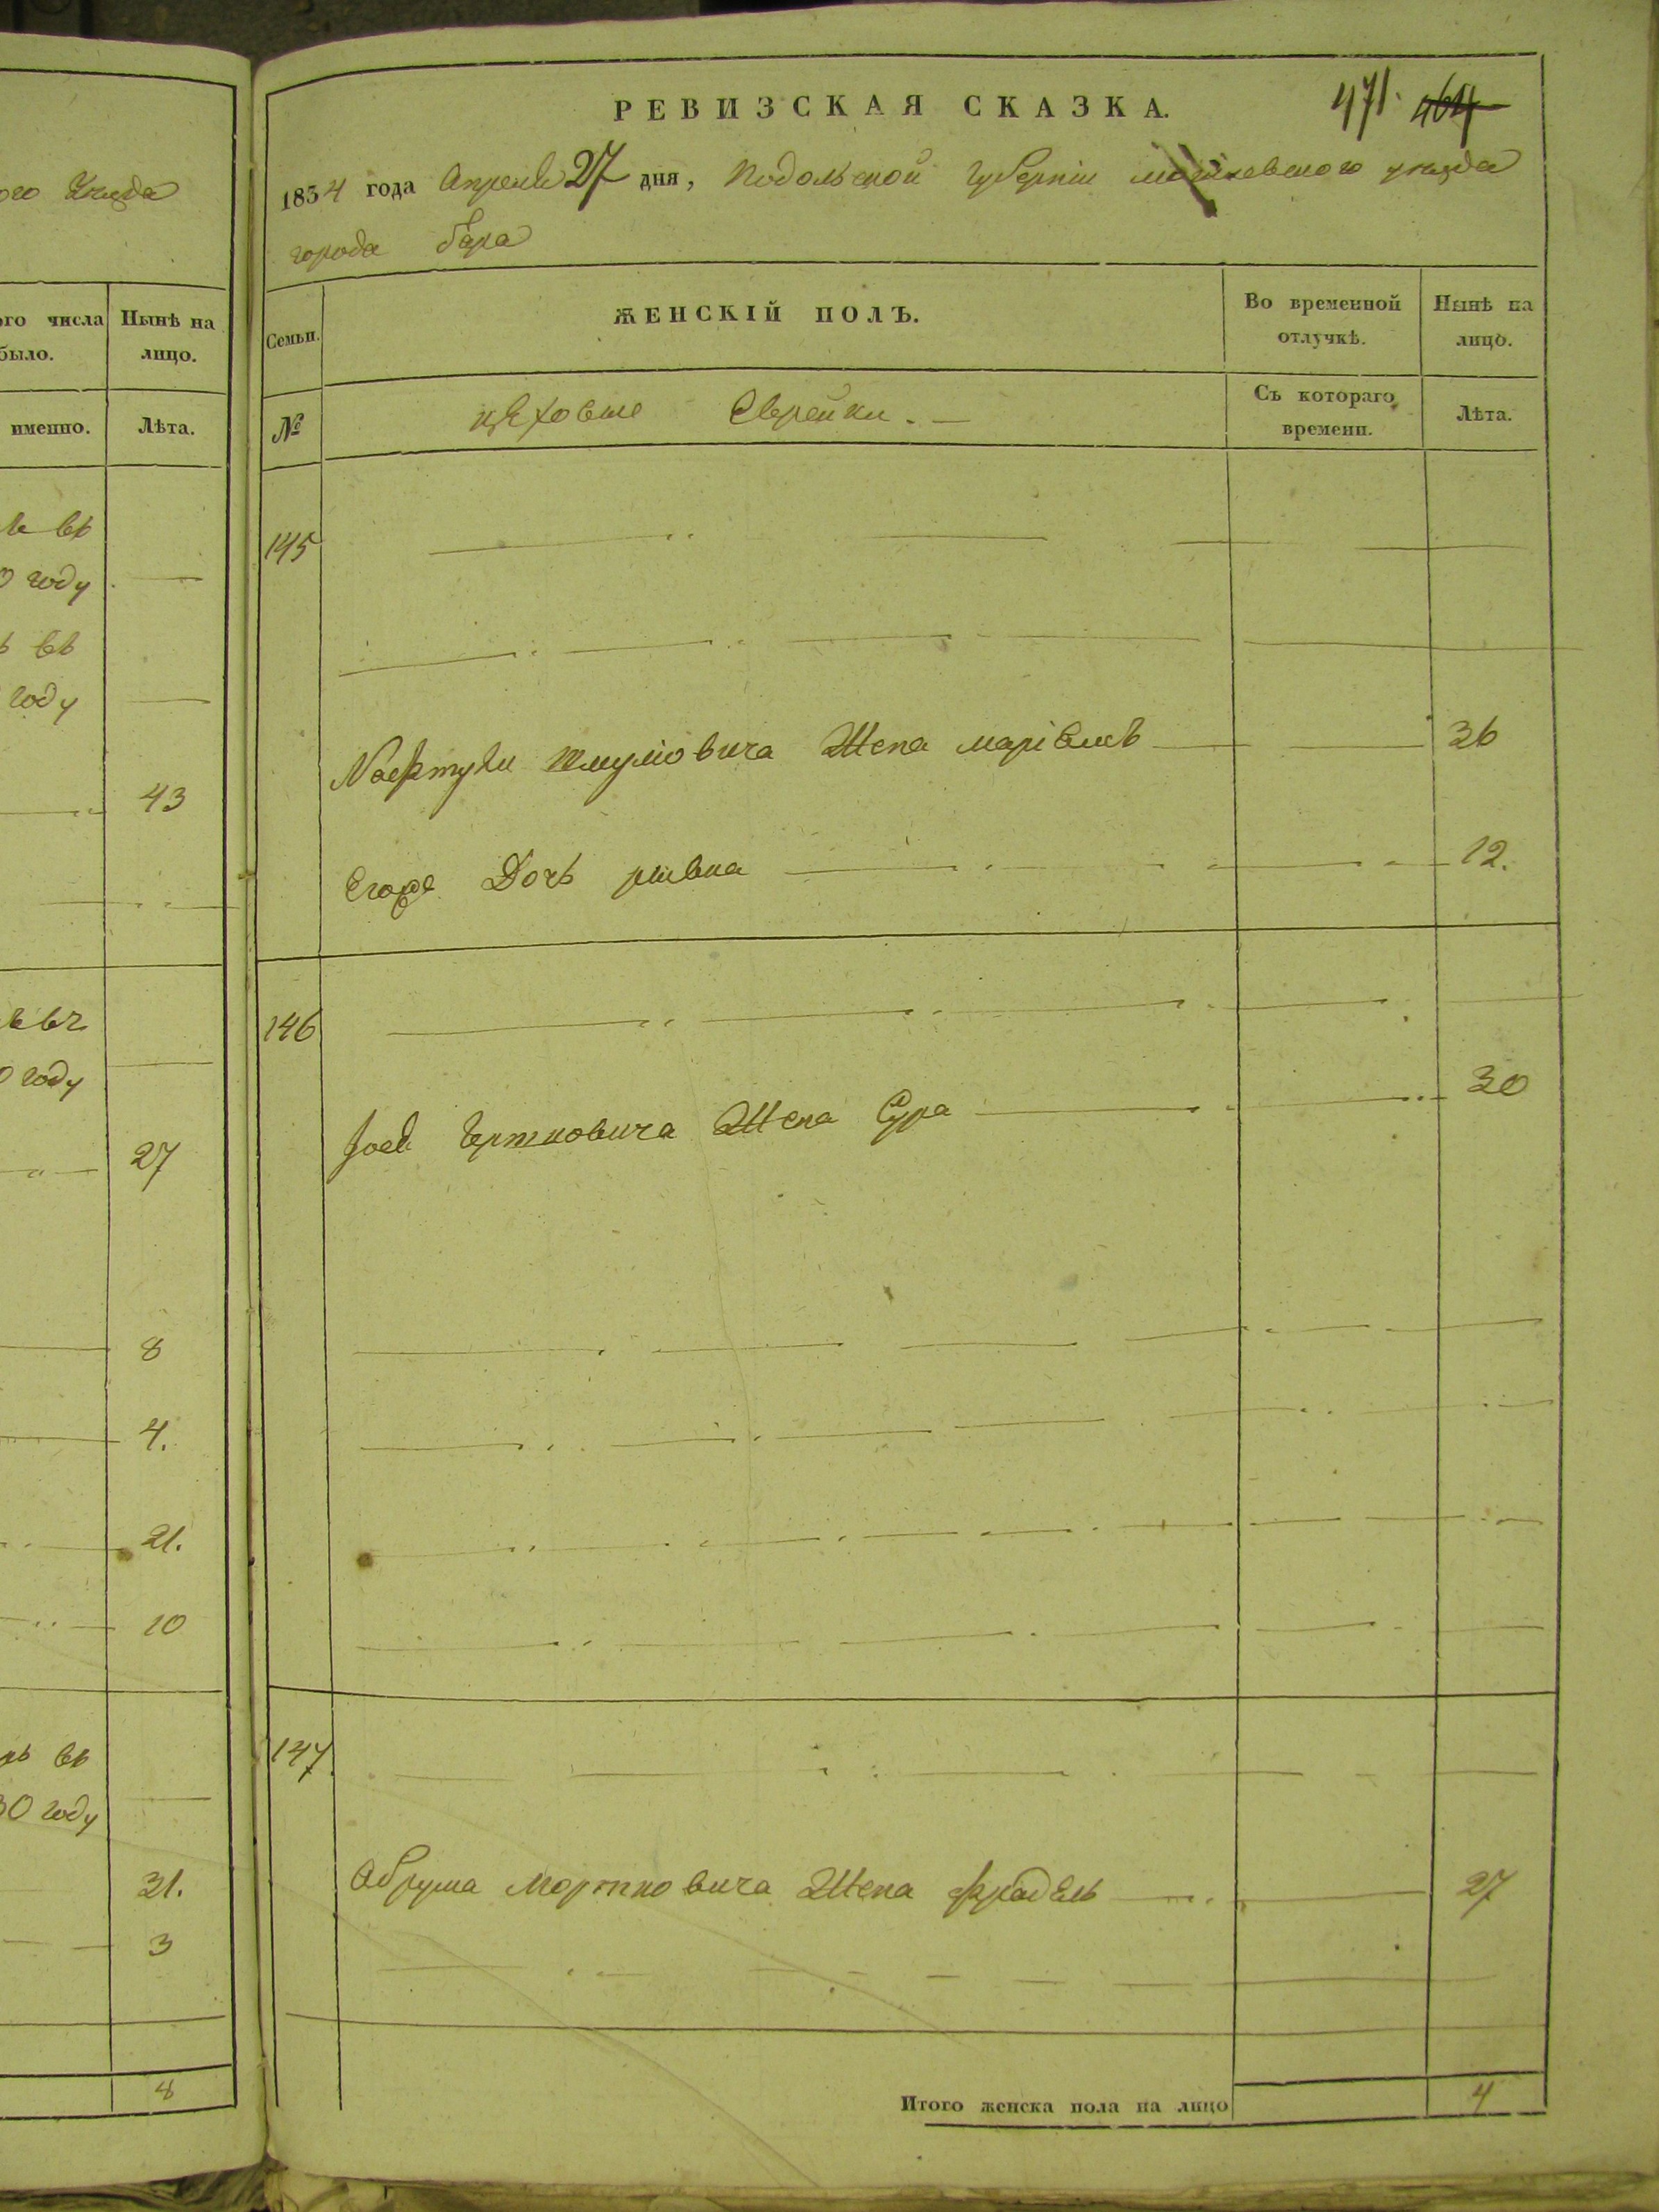 ого Уезда
ого числа Нынѣ на
было. лицо.
именно. Лѣта.
въ
0 году
въ
году
43
0 году
27
8
4.
21.
10
въ
30 году
31.
3
8
РЕВИЗСКАЯ СКАЗКА.
471. 464
1834 года Апреля 27 дня, Подольской Губерніи уезда
города бара
Семьи. ЖЕНСКІЙ ПОЛЪ. Во временной отлучкѣ. Нынѣ на лицо.
№ цеховые Еврейки. Съ котораго времени. Лѣта.
145
Шмулiовича Жена 36
Его Дочь ривка 12.
146
Жена Сура 30
147
Абрума Мортковича Жена фрадель 27
Итого женска пола на лицо 4